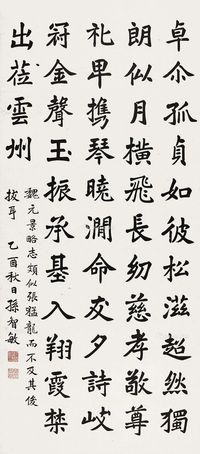 卓尒孤貞如彼松滋超然獨
朗似月橫飛長幼慈孝敬尊
礼甲携琴曉澗命友夕詩岐
冠金聲玉振承基入翔霞禁
出莅雲州
魏元景略志類似張猛龍而不及其俊
拔耳 乙酉秋日孫智敏